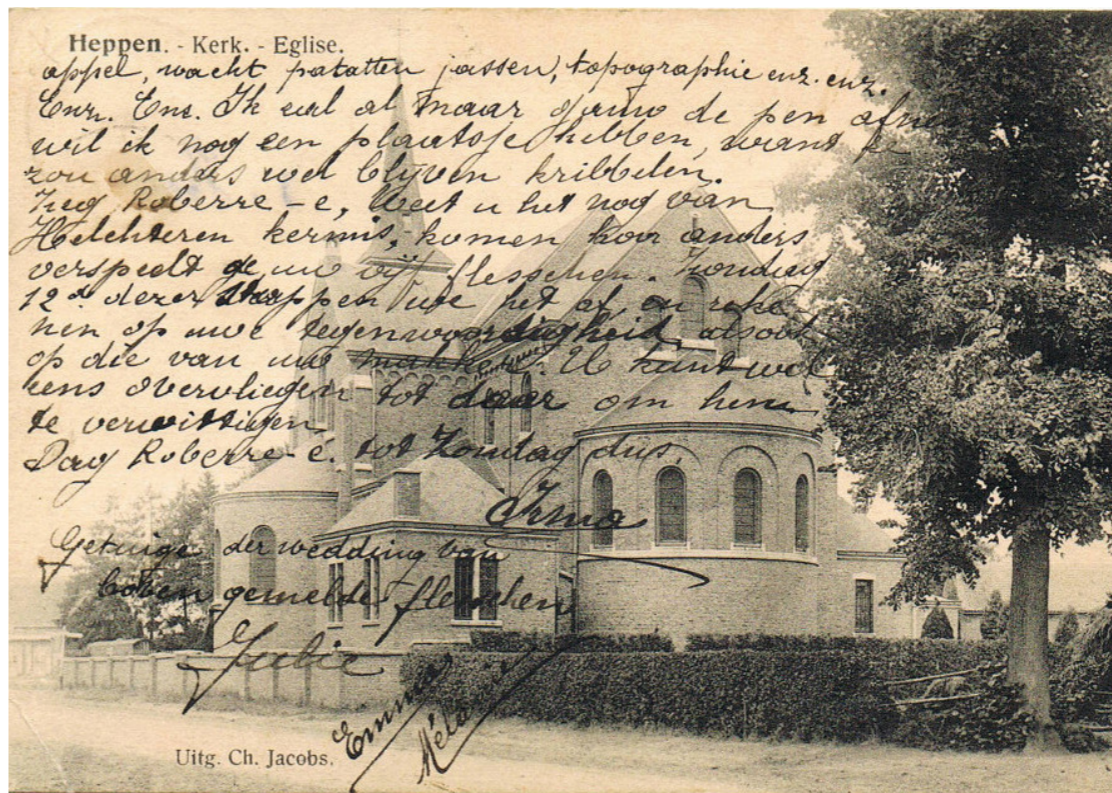 Heppen. - Kerk. - Eglise.
appel, wacht patatten jassen, topographie enz. enz.
Enz. Enz. Ik zal al maar gauw de pen
wil ik nog een plaatsje hebben, want
zou anders wel blijven kribbelen.
Zeg Roberre-e, weet u het nog van
Helchteren kermis, komen hoor anders
verspeelt ge uw vijf flesschen. Zondag
12e dezer stappen we het af, en reke-
nen op uwe tegenwoordigheid, alsook
op die van uw makker. U kunt wel
eens overvliegen tot daar om hem
te verwittigen
Dag Roberre-é. tot Zondag dus.
Irma
Getuige der wedding van
boven gemelde flesschen
Julie
Emma
Uitg. Ch. Jacobs.